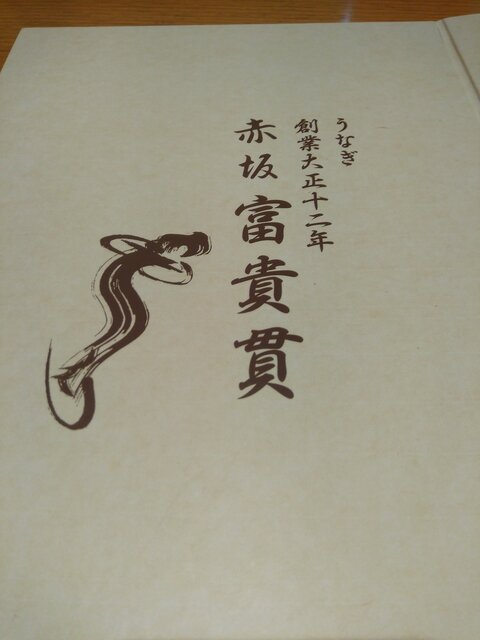 うなぎ
創業大正十二年
赤坂富貴貫